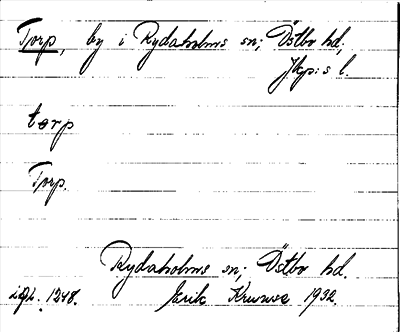 Torp, by i Rydaholms sn; Östbo hd;
Jkp:s l.
torp
Torp.
Rydaholms sn; Östbo hd.
1248. Erik 1932.